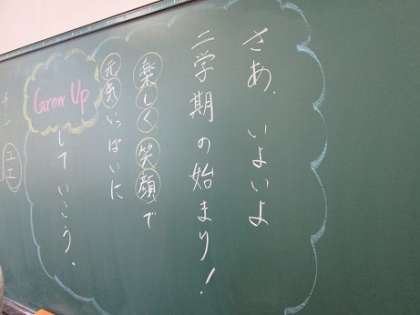 さあ、いよいよ
二学期の始まり！
楽しく笑顔で
元気いっぱいに
Grow Up
していこう。